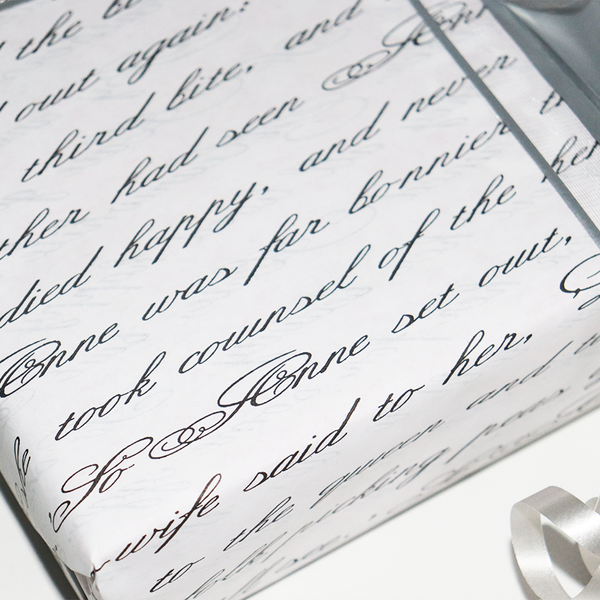 the
out again: and
third bite, and Ann
ther had seen
died happy, and never
Anne was far bonnier th
took counsel of the her
So Anne set out,
wife said to her,
to the queen and